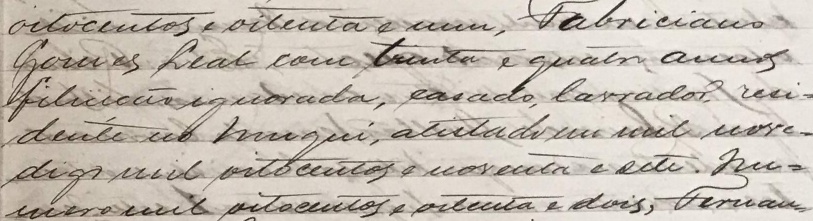 oitocentos e oitenta e um, Fabriciano
Gomes Leal com trinta e quatro annos
filiação ignorada, casado, lavrador, resi-
dente no Muqui, alistado em mil nove-
digo mil oitocentos e noventa e sete. Nu-
mero mil oitocentos e oitenta e dois, Fernan-